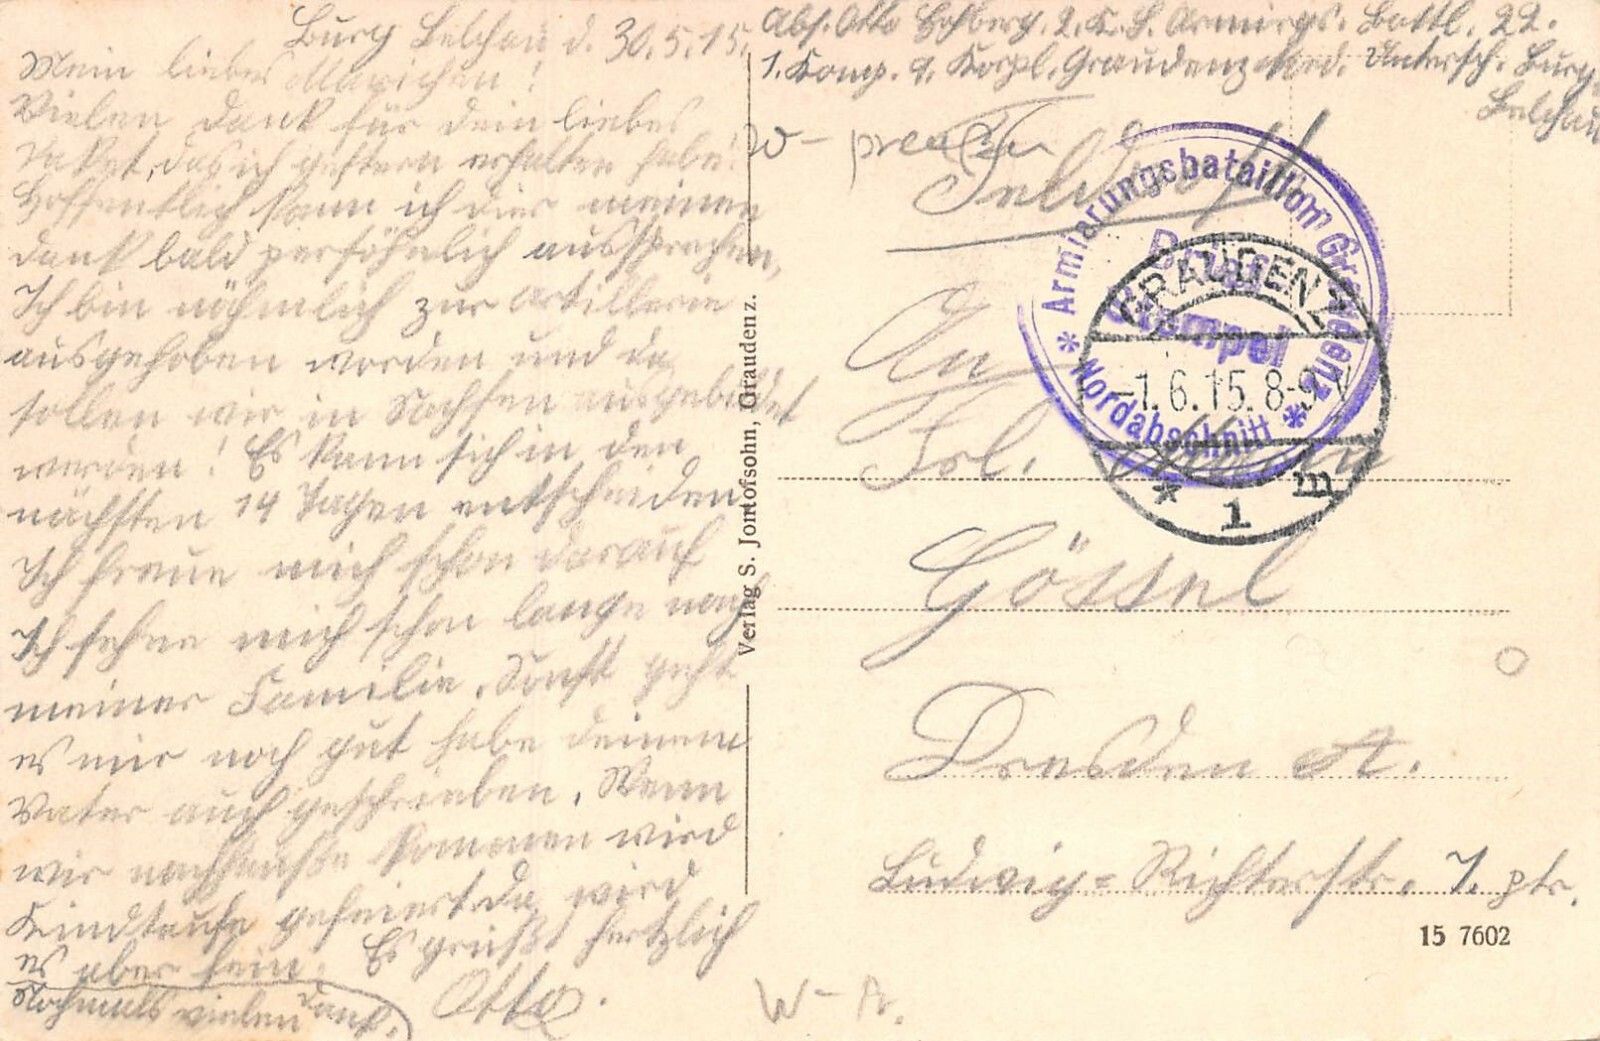 Burg Belchau d. 30.5.15.
Mein liebes Mariechen!
Vielen Dank für dein liebes
Paket, das ich gestern erhalten habe.
Hoffentlich kann ich dier meinen
dank bald persöhnlich aussprechen,
Ich bin nähmlich zur Artillerie
ausgehoben worden und da
sollen wir in Sachsen ausgebildet
werden! Es kann sich in den
nächsten 14 Tagen entscheiden
Ich freue mich schon darauf
Ich sehne mich schon lange nach
meiner Familie. Sonst geht
es mir noch gut habe deinem
Vater auch geschrieben. Wenn
wir nachhause kommen wird
Kindtaufe gefeiert da wird
es aber fein. Es grüßt herzlich
Nochmals vielen dank. Otto.
Abs. Otto Hohberg, 2. K. S. Armirgs. Battl. 22.
1. Komp. 9. Korpl. Graudenz Nord. Untersch. Burg
Belchau
W-preußen
Feldpost
Armierungsbataillon Graudenz
* Nordabschnitt *
Brief
Stempel
GRAUDENZ
-1.6.15.8-9V
* 1 m
An
Frl.
Gössel
Dresden A.
Ludwig-Richterstr. 7. ptr.
15 7602
Verlag S. Jontofsohn, Graudenz.
W-Pr.